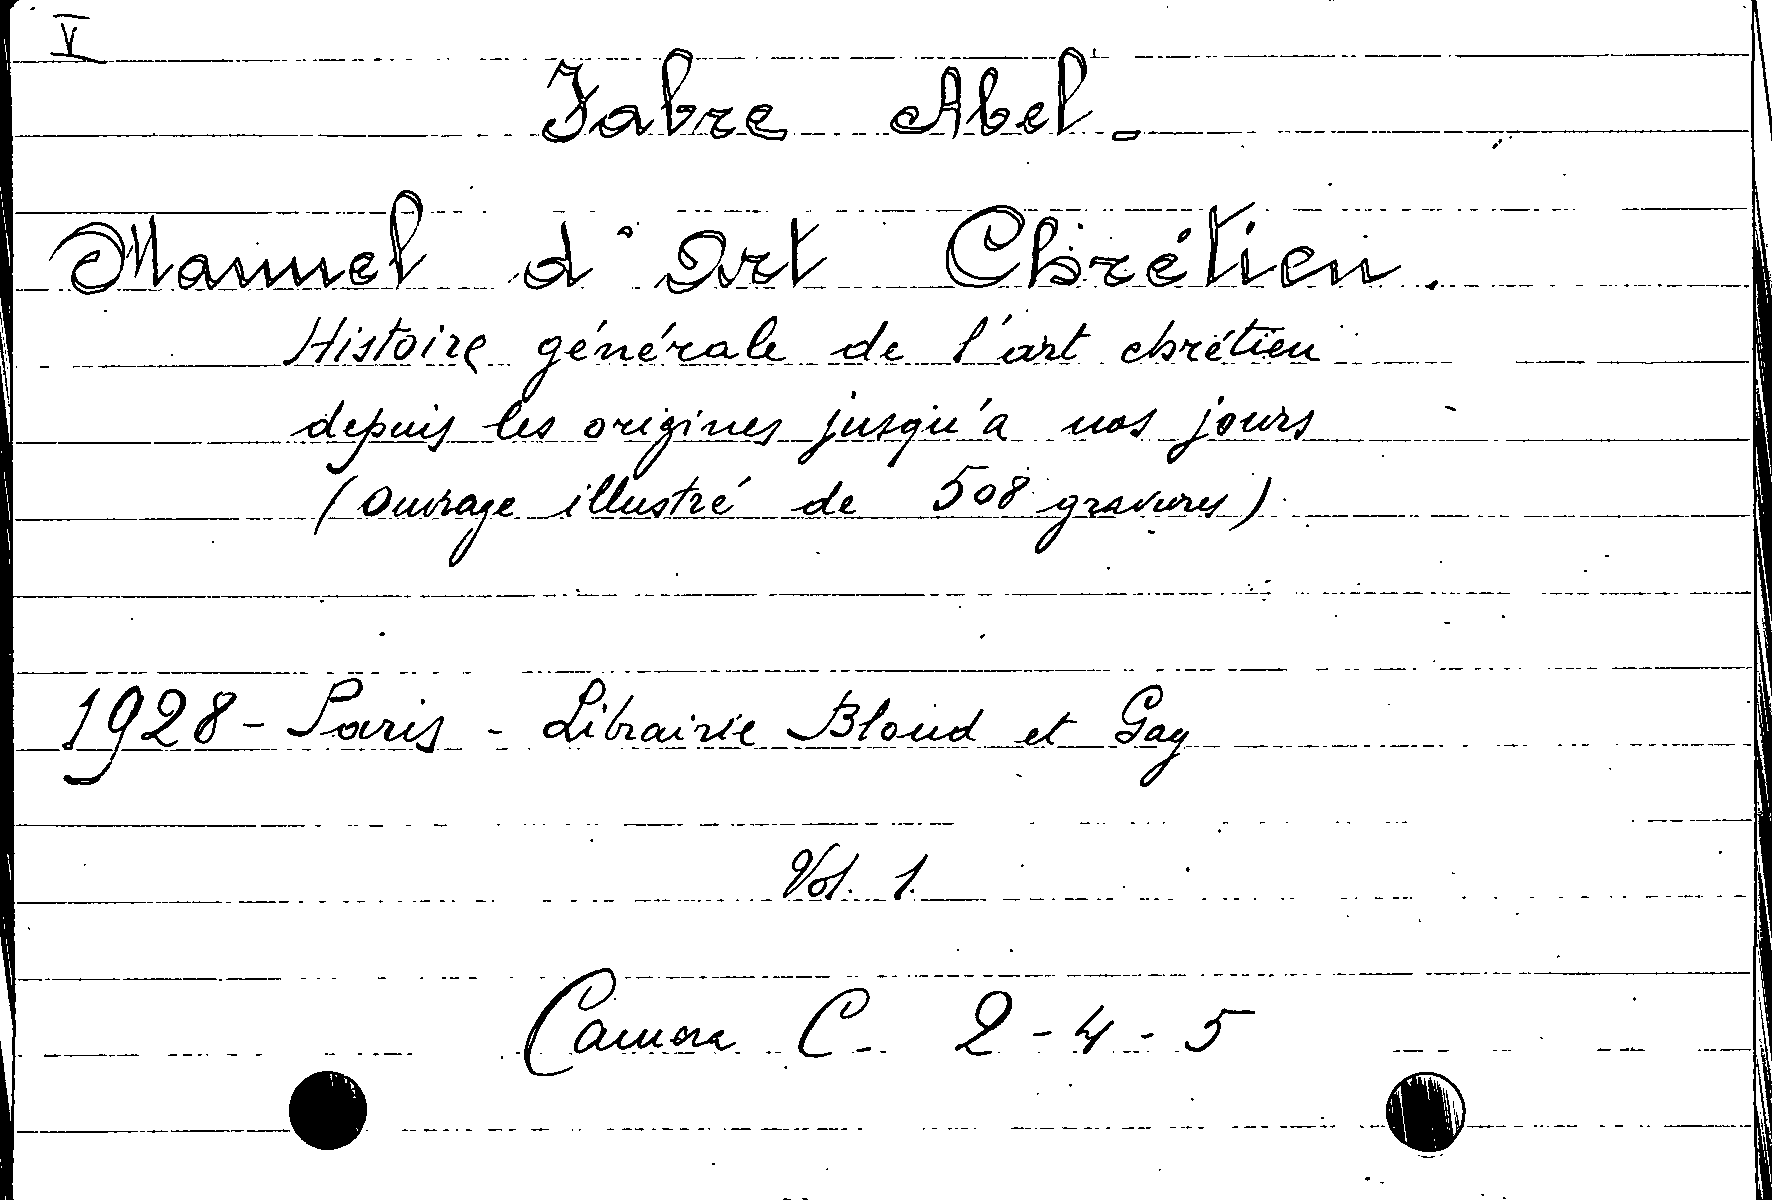 V
Fabre Abel.
Manuel d'Art Chrétien.
Histoire générale de l'art chrétien
depuis les origines jusqu'a nos jours
(Ouvrage illustré de 508 gravures)
1928 - Paris - Librairie Bloud et Gay
Vol. 1.
Camera C. 2-4-5